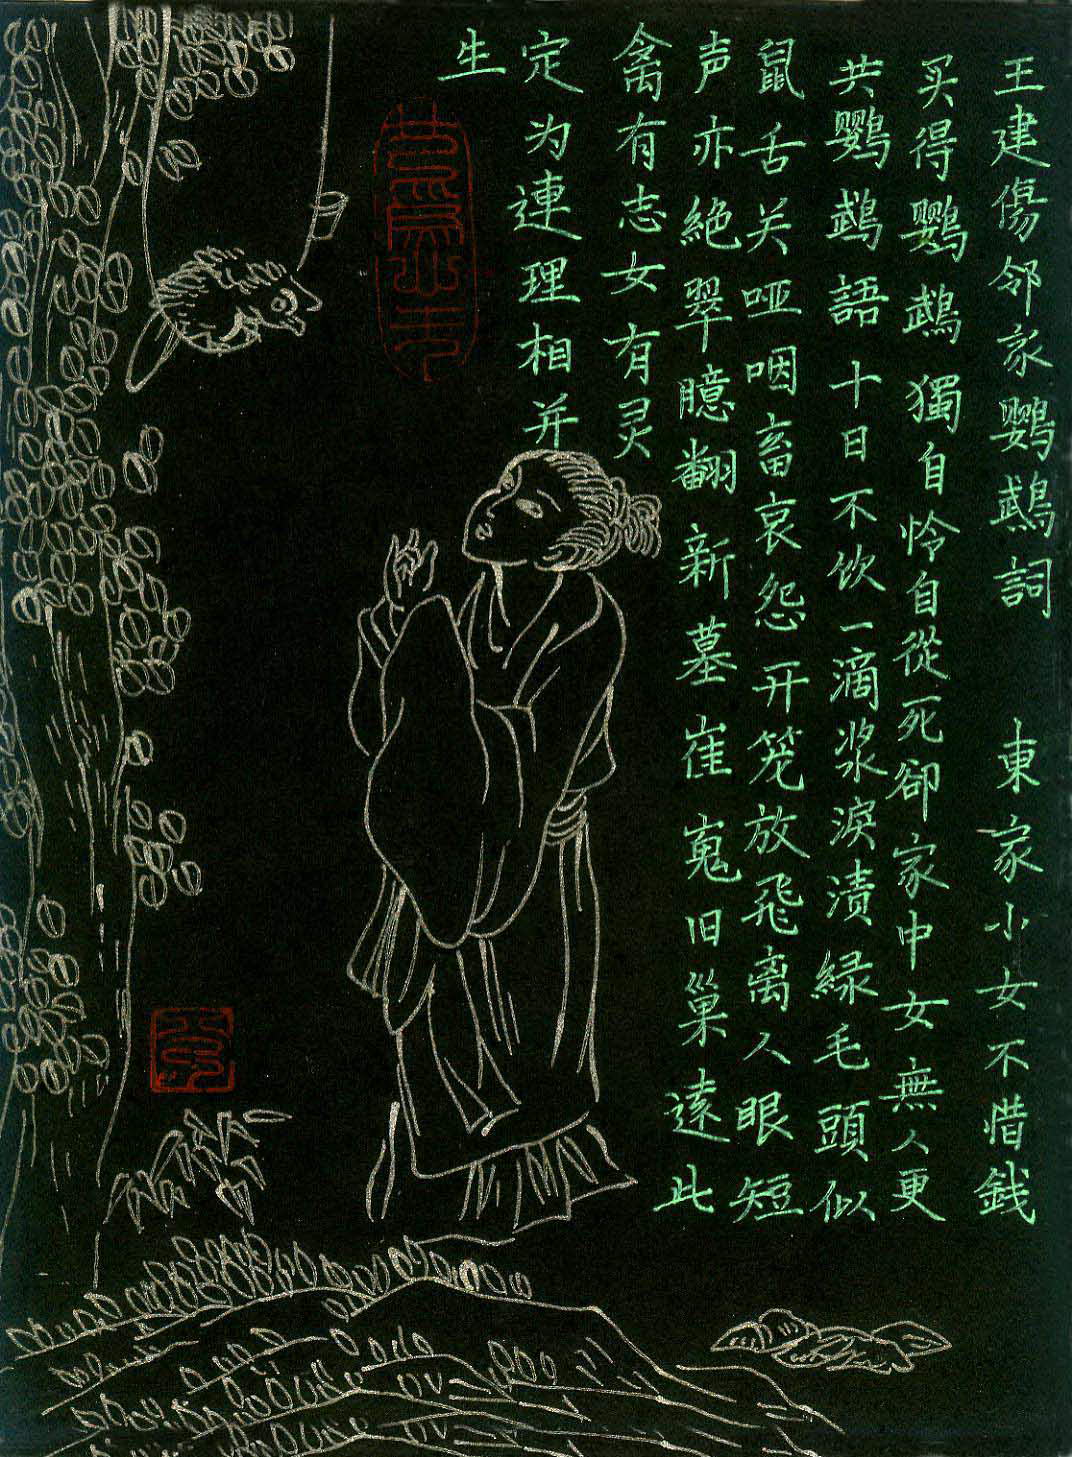 王建傷邻家鹦鵡詞 東家小女不惜錢
买得鹦鵡獨自怜自從死卻家中女無人更
共鹦鵡語十日不饮一滴浆淚渍緑毛頭似
鼠舌关哑咽畜哀怨开笼放飛离人眼短
声亦絶翠臆翻新墓崔嵬旧巢遠此
禽有志女有灵
定为連理相并
生